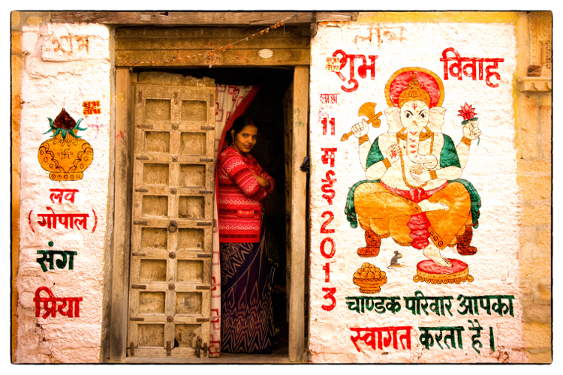 शुभ
लाभ
लव
( गोपाल )
संग
प्रिया
लाभ
शुभ विवाह
11 मई 2013
चाण्डक परिवार आपका
स्वागत करता है।